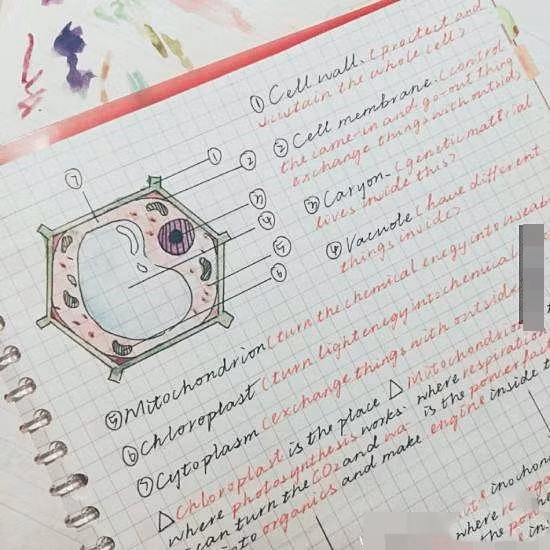 ① Cell wall. (protect and
sustain the whole cell)
② Cell membrane. (control
the came-in and go-out thing
exchange things with outside)
③ Caryon. (genetic material
lives inside this)
④ Vacuole (have different
things inside)
⑤ Mitochondrion (turn the chemical enegy into useab
⑥ Chloroplast (turn light enegy into chemical
⑦ Cytoplasm (exchange things with outside
△ Chloroplast is the place
where photosynthesis works.
can turn the CO2 and wa
into organics and make
△ Mitochondrion
where respiration
is the powerful
engine inside t
①
②
③
④
⑤
⑥
⑦
inochon
where re
the pow
e in